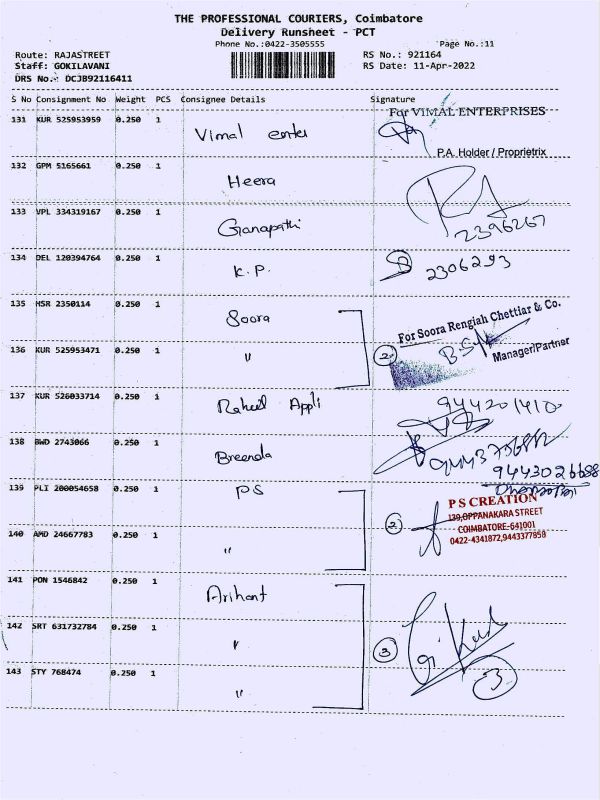 THE PROFESSIONAL COURIERS, Coimbatore
Delivery Runsheet - PCT
Phone No.:0422-3505555 Page No.:11
Route: RAJASTREET RS No.: 921164
Staff: GOKILAVANI RS Date: 11-Apr-2022
DRS No.: DCJB92116411
S No Consignment No Weight PCS Consignee Details Signature
131 KUR 525953959 0.250 1 Vimal enter For VIMAL ENTERPRISES
P.A. Holder / Proprietrix
132 GPM 5165661 0.250 1 Heera
133 VPL 334319167 0.250 1 Ganapathi 2396267
134 DEL 120394764 0.250 1 K.P. 2306293
135 HSR 2350114 0.250 1 Soora For Soora Rengiah Chettiar & Co.
136 KUR 525953471 0.250 1 " 2 Manager/Partner
137 KUR 526033714 0.250 1 Appli 944201410
138 BWD 2743066 0.250 1 Breenda
9443026688
139 PLI 200054658 0.250 1 PS P S CREATION
139,OPPANAKARA STREET
2 COIMBATORE-641001
140 AMD 24667783 0.250 1 " 0422-4341872,9443377858
141 PON 1546842 0.250 1 Arihant
142 SRT 631732784 0.250 1 " 3
143 STY 768474 0.250 1 " 3